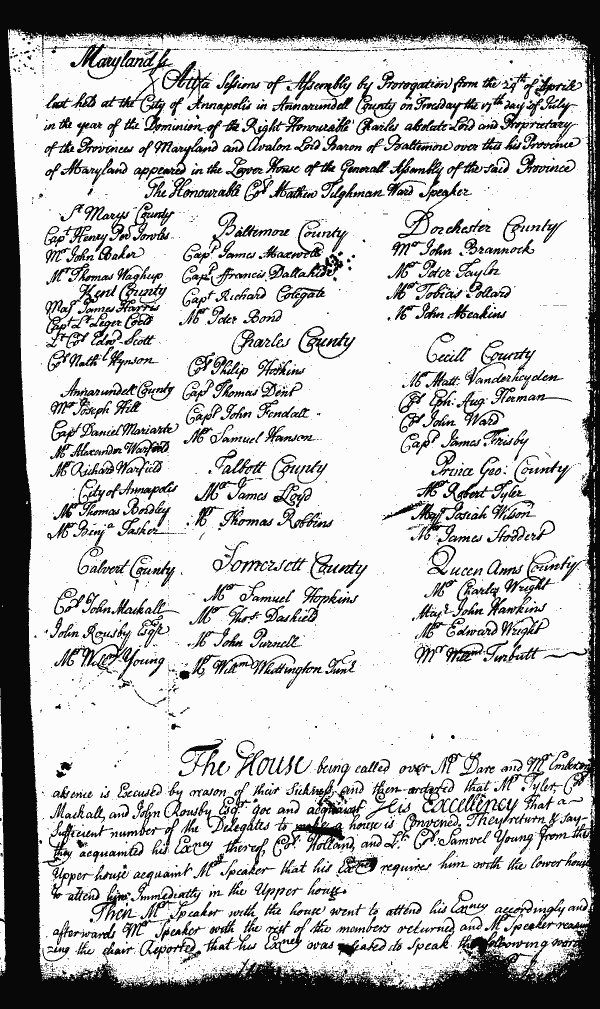 Maryland ss
Att a Sessions of Assembly by Prorogation from the 24th of Aprile
last held at the City of Annapolis in Annarundell County on Tuesday the 17th day of July
in the year of the Dominion of the Right Honourable Charles absolute Lord and Proprietary
of the Provinces of Maryland and Avalon Lord Baron of Baltemore over this his Province
of Maryland appeared in the Lower House of the Generall Assembly of the said Province
The Honourable Col Mathew Tilghman Ward Speaker
St Marys County
Capt Henry Per Jowles
Mr John Baker
Mr Thomas Waghup
Kent County
Majr James Harris
Capt St Leger Codd
Lt Col Edwd Scott
Col Nath Hynson
Annarundell County
Mr Joseph Hill
Capt Daniel Mariarte
Mr Alexander Warfield
Mr Richard Warfield
City of Annapolis
Mr Thomas Bordley
Mr Benja Tasker
Calvert County
Col John Mackall
John Rousby Esqr
Mr Willm Young
Baltemore County
Capt James Maxwell
Capt Francis Dallahide
Capt Richard Colegate
Mr Peter Bond
Charles County
Col Philip Hoskins
Capt Thomas Dent
Capt John Fendall
Mr Samuel Hanson
Talbott County
Mr James Loyd
Mr Thomas Robbins
Somersett County
Mr Samuel Hopkins
Mr Thos Dashield
Mr John Purnell
Mr Willm Whittington Junr
Dorchester County
Mr John Brannock
Mr Peter Taylor
Mr Tobias Pollard
Mr John Meakins
Cecill County
Mr Matt. Vanderheyden
Col Eph. Aug. Herman
Col John Ward
Capt James Frisby
Prince Geo: County
Mr Robert Tyler
Majr Josiah Wilson
Mr James Stoddert
Queen Anns County
Mr Charles Wright
Majr John Hawkins
Mr Edward Wright
Mr Willm Turbutt
The House being called over Mr Dare and Mr
absence is Excused by reason of their Sickness and then ordered that Mr Tyler, Col
Mackall, and John Rousby Esqr goe and acquaint His Excellency that a
Sufficient number of the Delegates to house is Convened. They return & say
they acquainted his Exncy thereof Col Holland, and Lt Col Samuel Young from the
Upper house acquaint Mr Speaker that his Exncy requires him with the lower house
to attend him Immediatly in the Upper house.
Then Mr Speaker with the house went to attend his Exncy accordingly and
afterwards Mr Speaker with the rest of the members returned and Mr Speaker
the chair Reported that his Exncy was pleased to Speak the following words